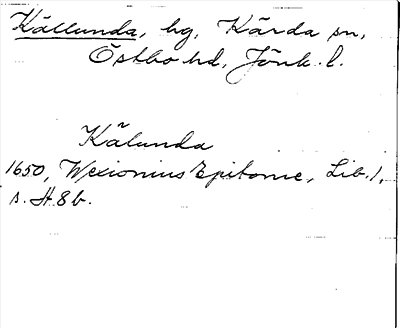 Källunda, hg, Kärda sn,
Östbo hd, Jönk. l.
Kälunda
1650, Wexionius Epitome, Lib. 1,
s. H 8 b.